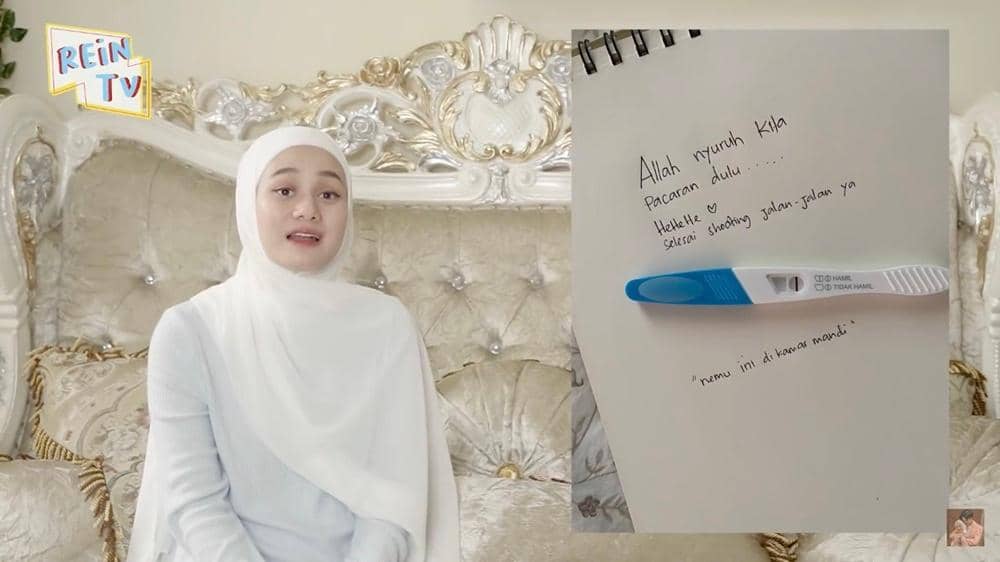 REiN
TV
Allah nyuruh kita
Pacaran dulu.....
HeHeHe ♡
selesai shooting jalan-jalan ya
HAMIL
TIDAK HAMIL
"nemu ini di kamar mandi"